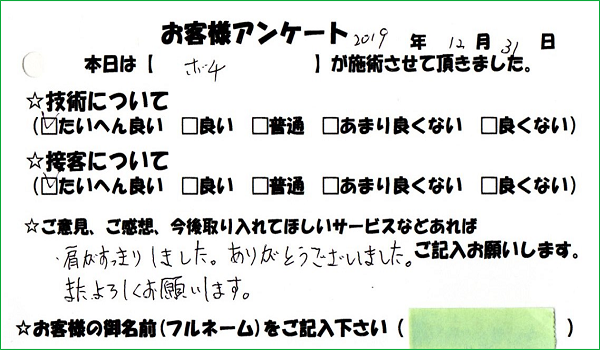 お客様アンケート 2019 年 12 月 31 日
本日は【 ホ゛チ 】が施術させて頂きました。
☆技術について
(☑たいへん良い □良い □普通 □あまり良くない □良くない)
☆接客について
(☑たいへん良い □良い □普通 □あまり良くない □良くない)
☆ご意見、ご感想、今後取り入れてほしいサービスなどあれば
ご記入お願いします。
肩がすっきりしました。ありがとうございました。
またよろしくお願いします。
☆お客様の御名前(フルネーム)をご記入下さい (